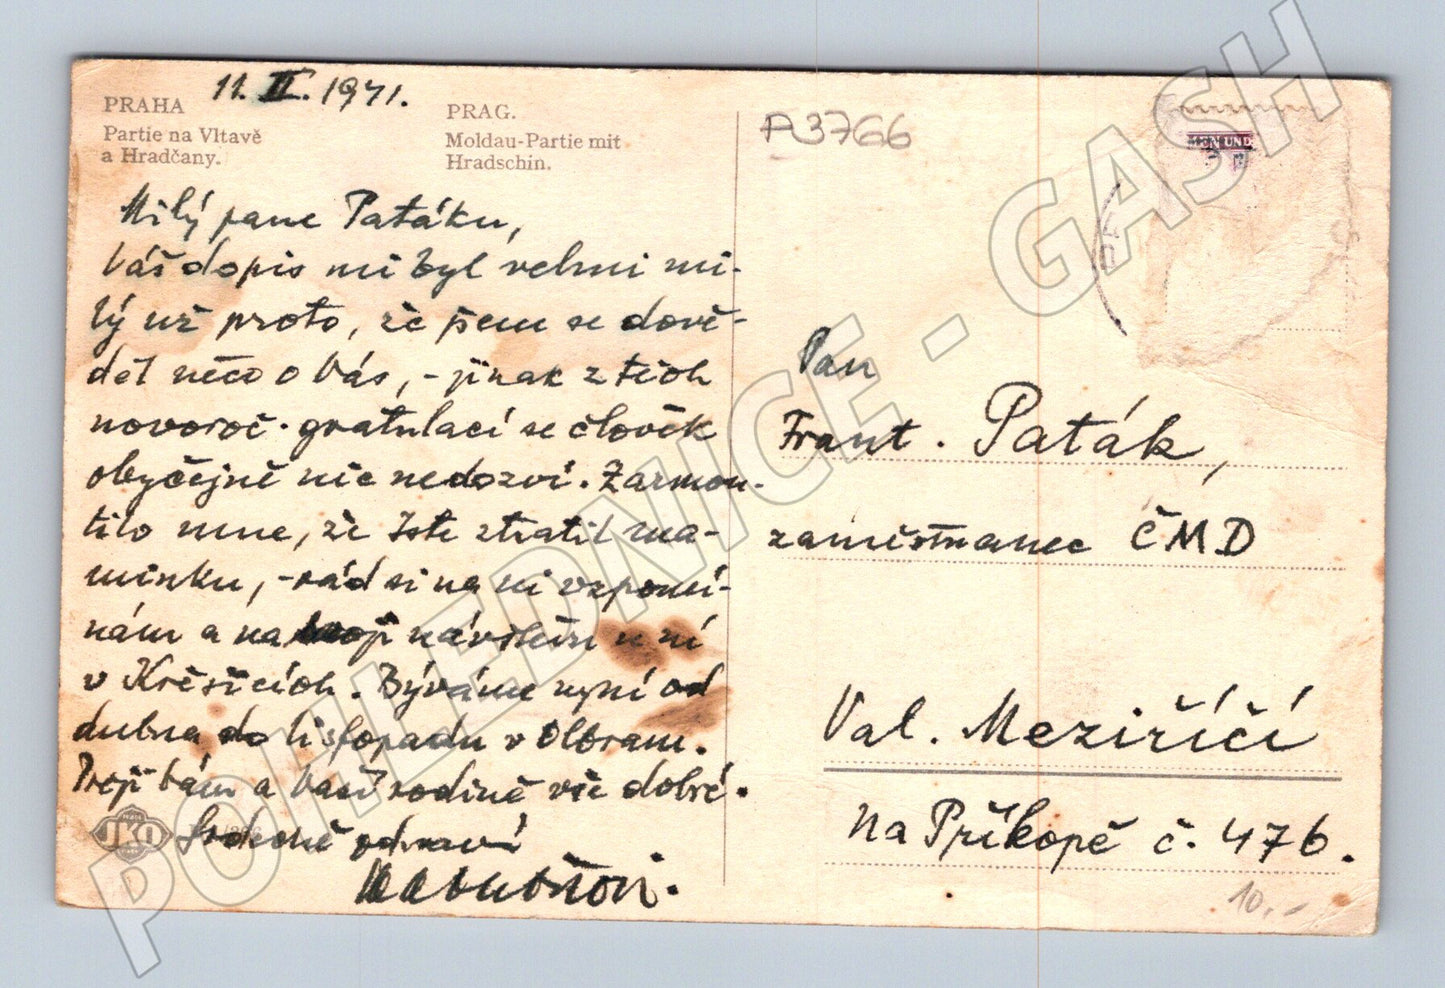 PRAHA
Partie na Vltavě
a Hradčany.
11. II. 1941.
PRAG.
Moldau-Partie mit
Hradschin.
Milý pane Patáku,
Váš dopis mi byl velmi mi-
lý už proto, že jsem se dově-
děl něco o Vás, - jinak z těch
novoroč. gratulací se člověk
obyčejně nic nedozví. Zarmou-
tilo mne, že Jste ztratil ma-
minku, - rád si na ni vzpomí-
nám a na moji návštěvu u ní
v Křešicích. Býváme nyní od
dubna do listopadu v Olbram.
Přeji Vám a Vaší rodině vše dobré.
Srdečně zdraví
JKO
A3766
MEN UND
Pan
Frant. Paták,
zaměstnanec ČMD
Val. Meziříčí
Na Příkopě č. 476.
10.-
POHLEDNICE - GASH